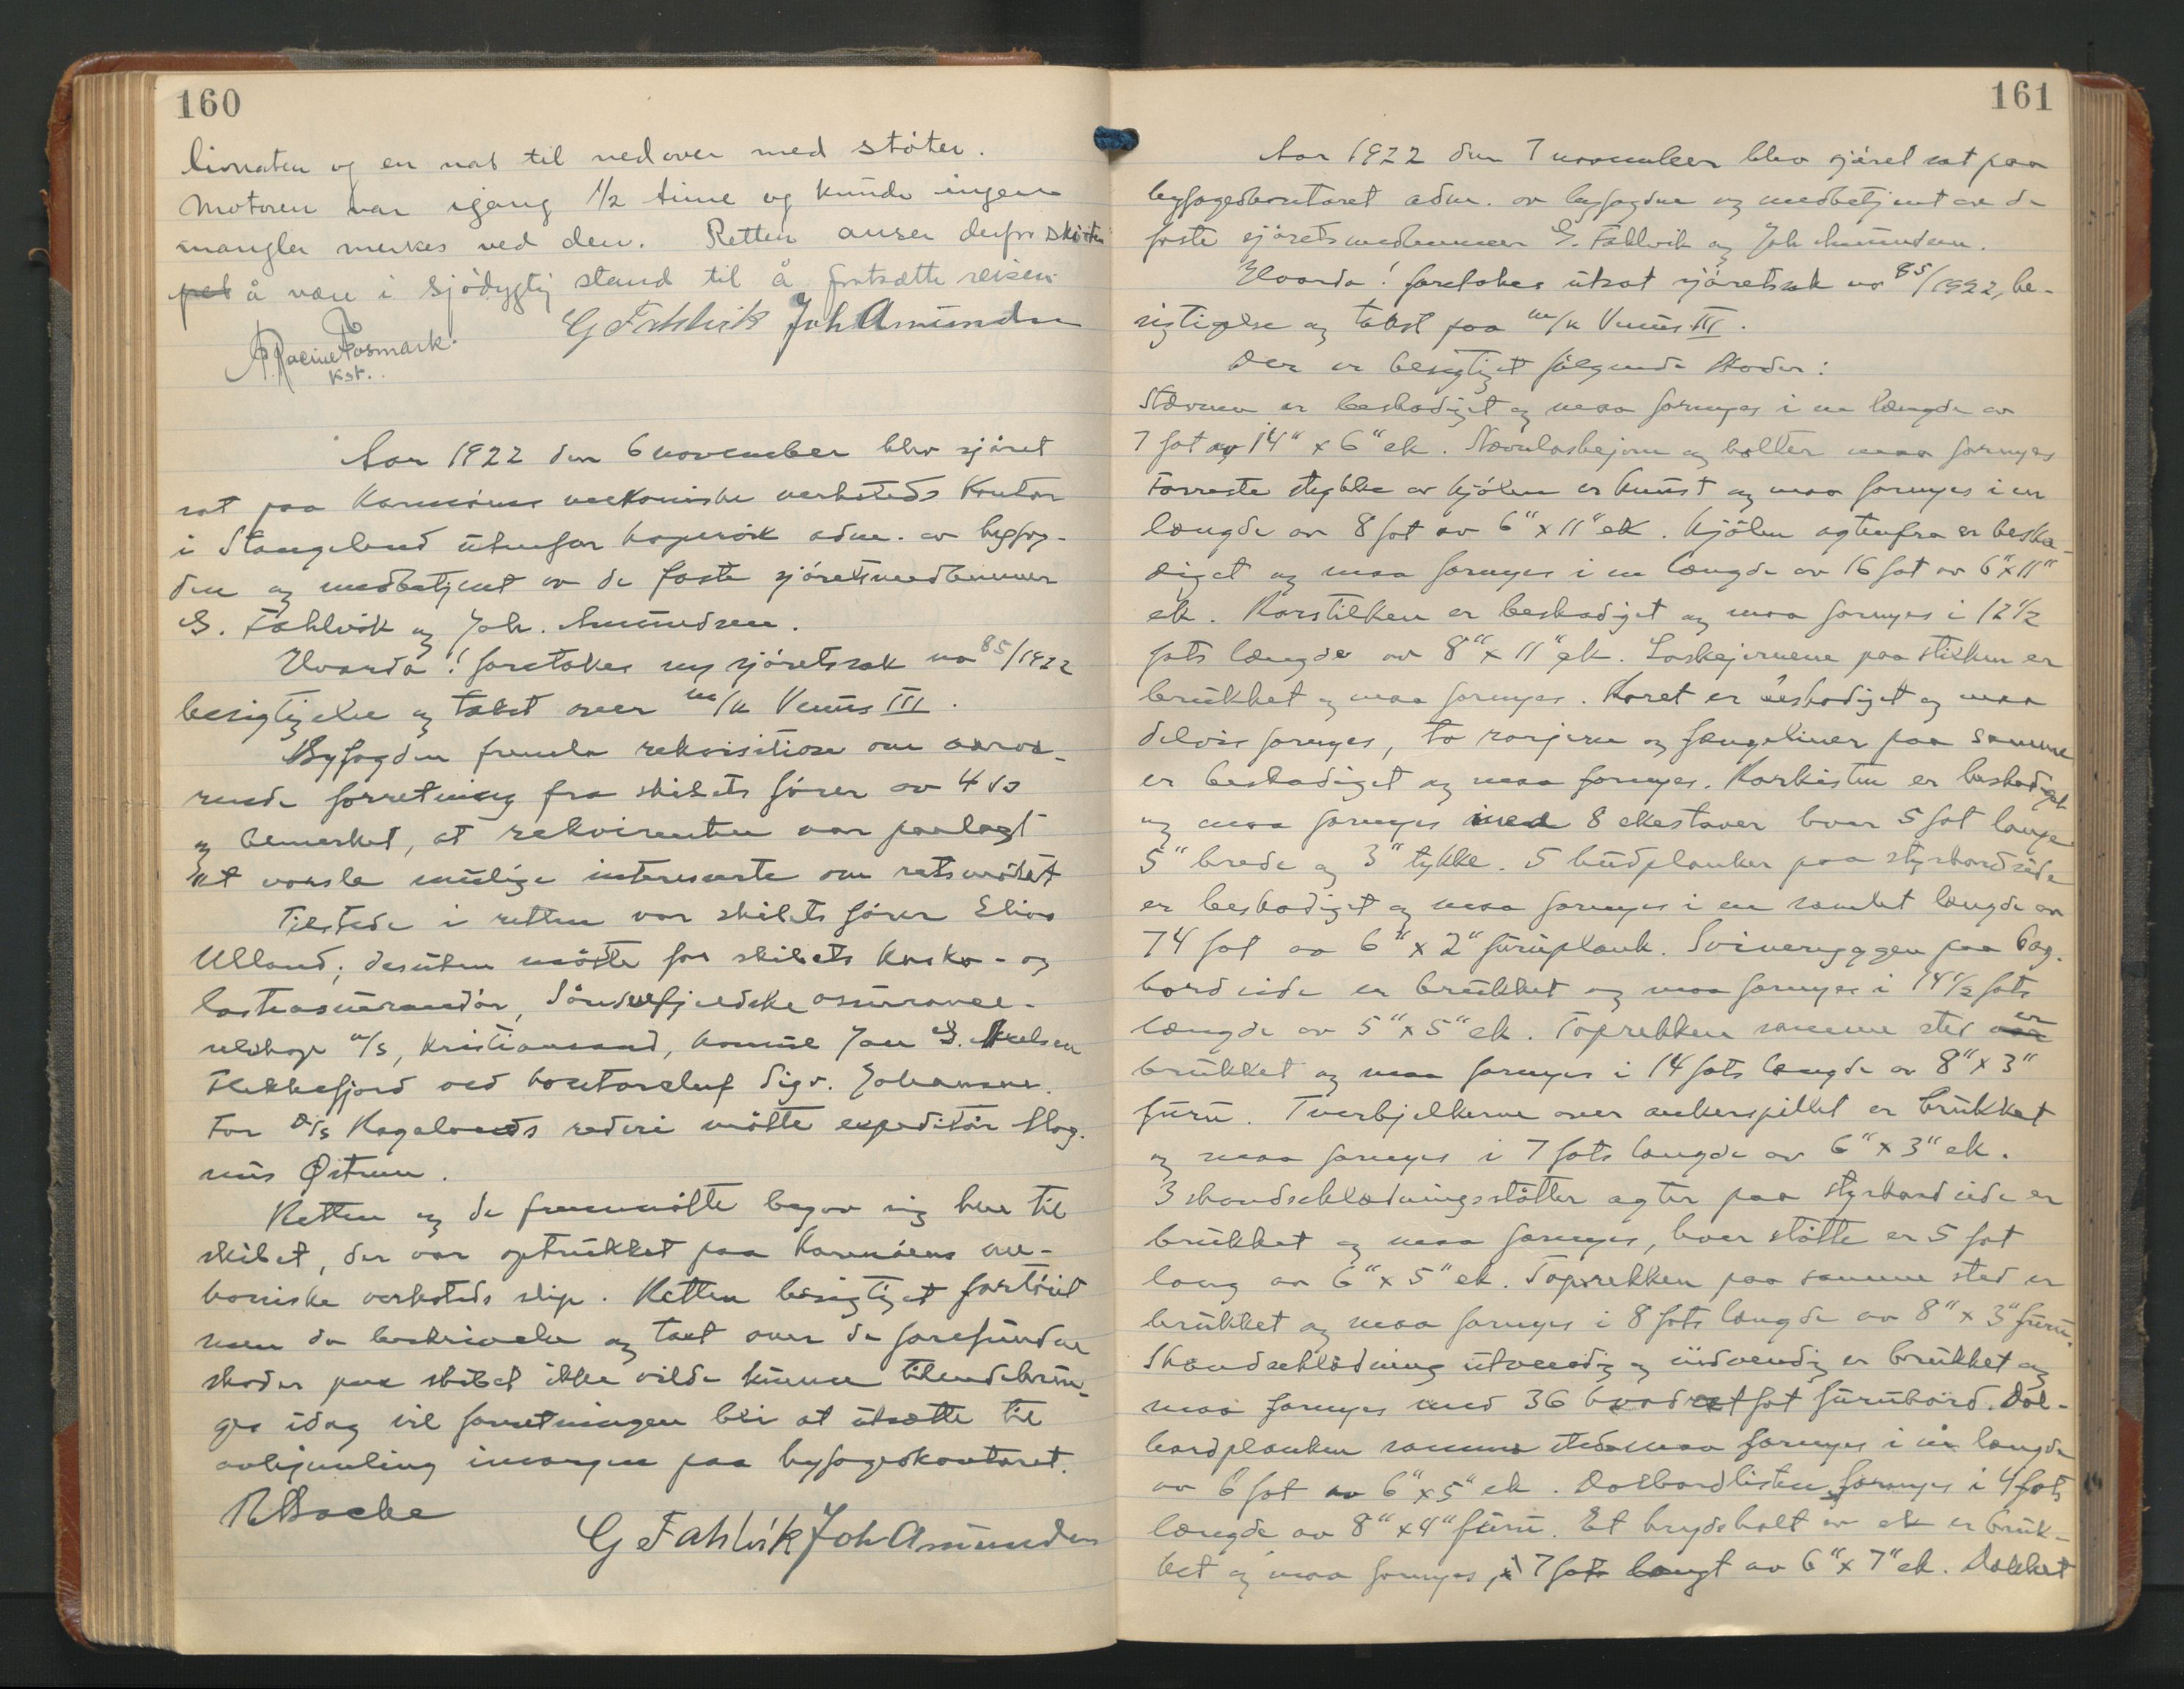 160
og en nat til nedover med støter.
Motoren var igang 1/2 time og kunde ingen
mangler merkes ved den. Retten anser derfor skøiten
å være i sjødygtig stand til å fortsætte reisen.
G Fahlvik Joh Amundsen
Kst.
Aar 1922 den 6 november blev sjøret
sat paa Karmøens mekaniske verksteds kontor
i Stangeland utenfor Kopervik adm. av byfog-
den og medbetjent av de faste sjøretsmedlemmer
G. Fahlvik og Joh. Amundsen.
Hvorda! foretokes ny sjøretssak no 85/1922
besigtigelse og takst over m/k Venus III.
Byfogden fremla rekvisition om nærvæ-
rende forretning fra skibets fører av 4 ds
og bemerket, at rekvirenten var paalagt
at varsle mulige interesserte om retsmøtet
Tilstede i retten var skibets fører Elias
Ulland; desuten møtte for skibets kasko- og
lasteassurandør, Søndenfjeldske assurance-
selskap a/s, Kristiansand, konsul Jan G. Axelsen
Flekkefjord ved kontorchef Sigv. Johansen.
For D/S Hogelands rederi møtte expeditør Mag-
nus Østrem.
Retten og de fremmøtte begav sig hen til
skibet, der var optrukket paa Karmøens me-
kaniske verksteds slip. Retten besigtiget fartøiet
men da beskrivelse og takst over de forefundne
skader paa skibet ikke vilde kunne tilendebrin-
ges idag vil forretningen bli at utsætte til
avhjemling imorgen paa byfogedkontoret.
G Fahlvik Joh Amundsen
161
Aar 1922 den 7 november blev sjøret sat paa
byfogedkontoret adm. av byfogden og medbetjent av de
faste sjøretsmedlemmer G. Fahlvik og Joh Amundsen.
Hvorda! foretokes utsat sjøretssak no 85/1922, be-
sigtigelse og takst paa m/k Venus III.
Der er besigtiget følgende skader:
Stævnen er beskadiget og maa fornyes i en længde av
7 fot av 14" x 6" ek. Stævnlaskejern og bolter maa fornyes
Forreste stykke av kjølen er knust og maa fornyes i en
længde av 8 fot av 6" x 11" ek. Kjølen agtenfra er beska-
diget og maa fornyes i en længde av 16 fot av 6" x 11"
ek. Rorstilken er beskadiget og maa fornyes i 12 1/2
fots længde av 8" x 11" ek. Laskejernene paa stilken er
brukket og maa fornyes. Roret er beskadiget og maa
delvis fornyes, to rorjern og fangeliner paa samme
er beskadiget og maa fornyes. Rorkisten er beskadiget
og maa fornyes med 8 ekestaver hver 5 fot lange
5" brede og 3" tykke. 5 hudplanker paa styrbordside
er beskadiget og maa fornyes i en samlet længde av
74 fot av 6" x 2" furuplank. Svineryggen paa bag-
bordside er brukket og maa fornyes i 14 1/2 fots
længde av 5" x 5" ek. Toprekken samme sted er
brukket og maa fornyes i 14 fots længde av 8" x 3"
furu. Tverbjelkerne over ankerspillet er brukket
og maa fornyes i 7 fots længde av 6" x 3" ek.
3 skandseklædningsstøtter agter paa styrbordside er
brukket og maa fornyes, hver støtte er 5 fot
lang av 6" x 5" ek. Toprekken paa samme sted er
brukket og maa fornyes i 8 fots længde av 8" x 3" furu.
Skandseklædning utvendig og indvendig er brukket og
maa fornyes med 36 kvadratfot furubord. Dol-
bordplanken samme sted maa fornyes i en længde
av 6 fot av 6" x 5" ek. Dolbordlisten fornyes i 4 fots
længde av 8" x 4" furu. Et brydeholt av ek er bruk-
ket og maa fornyes, 7 fot langt av 6" x 7" ek. Dækket